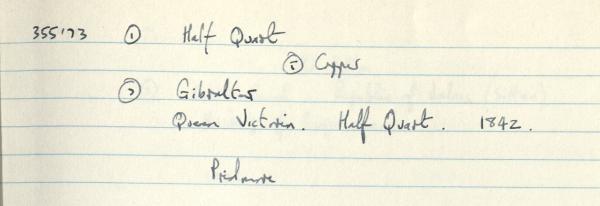 355'73 ① Half Quart
⑤ Copper
② Gibraltar
Queen Victoria. Half Quart. 1842.
Pridmore